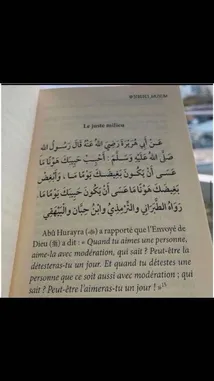 Le juste milieu
عَنْ أَبِي هُرَيْرَةَ رَضِيَ اللهُ عَنْهُ قَالَ رَسُولُ اللهِ
صَلَّى اللهُ عَلَيْهِ وَسَلَّمَ : أَحْبِبْ حَبِيبَكَ هَوْنًا مَا
عَسَى أَنْ يَكُونَ بَغِيضَكَ يَوْمًا مَا ، وَأَبْغِضْ
بَغِيضَكَ هَوْنًا مَا عَسَى أَنْ يَكُونَ حَبِيبَكَ يَوْمًا مَا.
رَوَاهُ الطَّبَرَانِي وَالتِّرْمِذِي وَابْنُ حِبَّانَ وَالْبَيْهَقِي
Abû Hurayra (رضي الله عنه) a rapporté que l'Envoyé de
Dieu (ﷺ) a dit : « Quand tu aimes une personne,
aime-la avec modération, qui sait ? Peut-être la
détesteras-tu un jour. Et quand tu détestes une
personne que ce soit aussi avec modération ; qui
sait ? Peut-être l'aimeras-tu un jour ! »